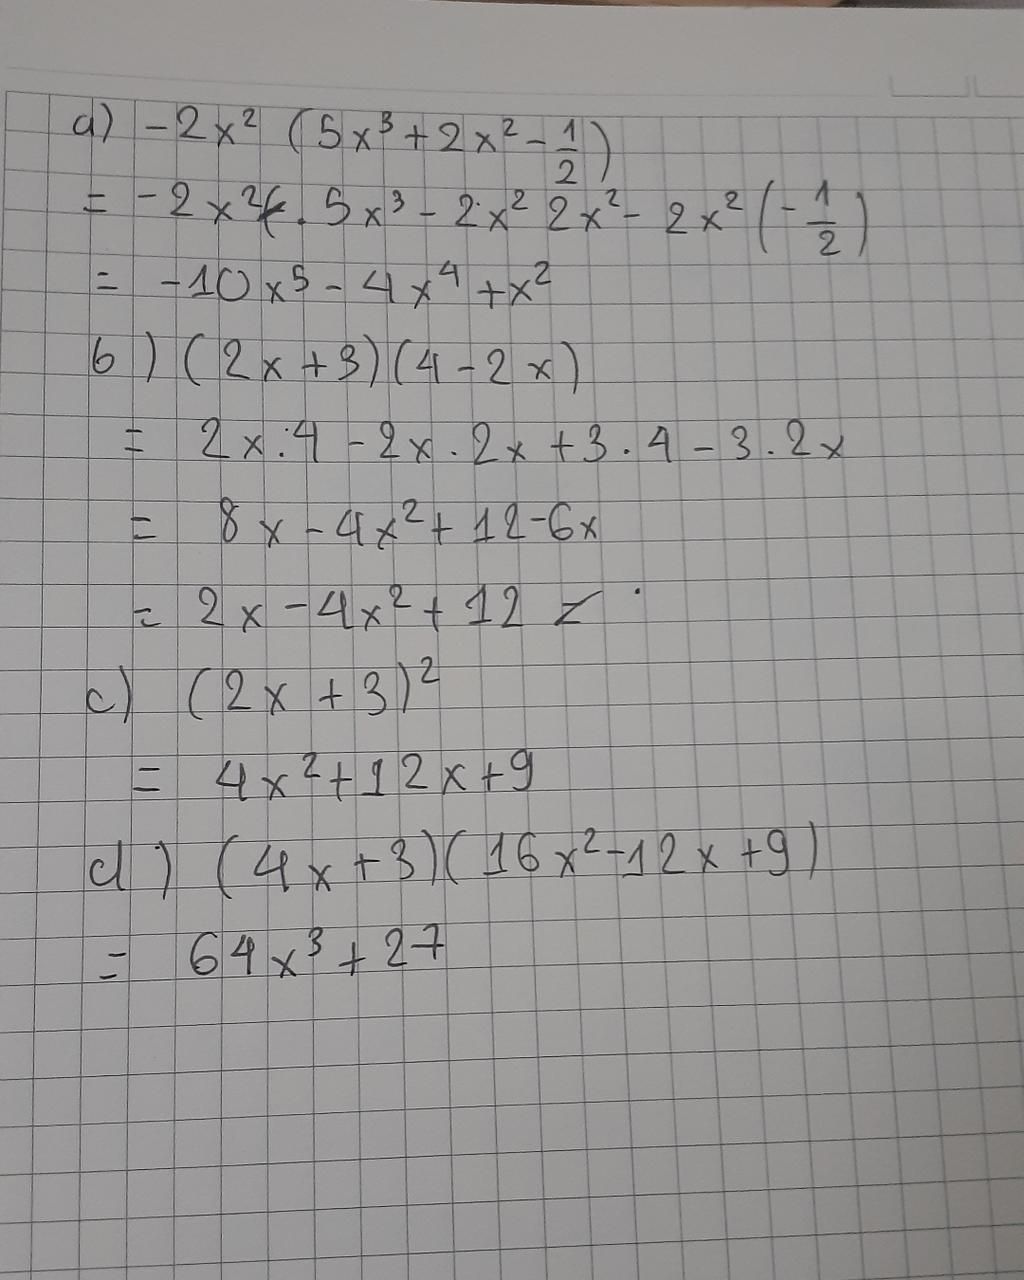 a) -2x² (5x³ + 2x² - 1/2)
= -2x² . 5x³ - 2x² 2x² - 2x² (- 1/2)
= -10x⁵ - 4x⁴ + x²
b) (2x + 3)(4 - 2x)
= 2x . 4 - 2x . 2x + 3 . 4 - 3 . 2x
= 8x - 4x² + 12 - 6x
= 2x - 4x² + 12
c) (2x + 3)²
= 4x² + 12x + 9
d) (4x + 3)(16x² - 12x + 9)
= 64x³ + 27